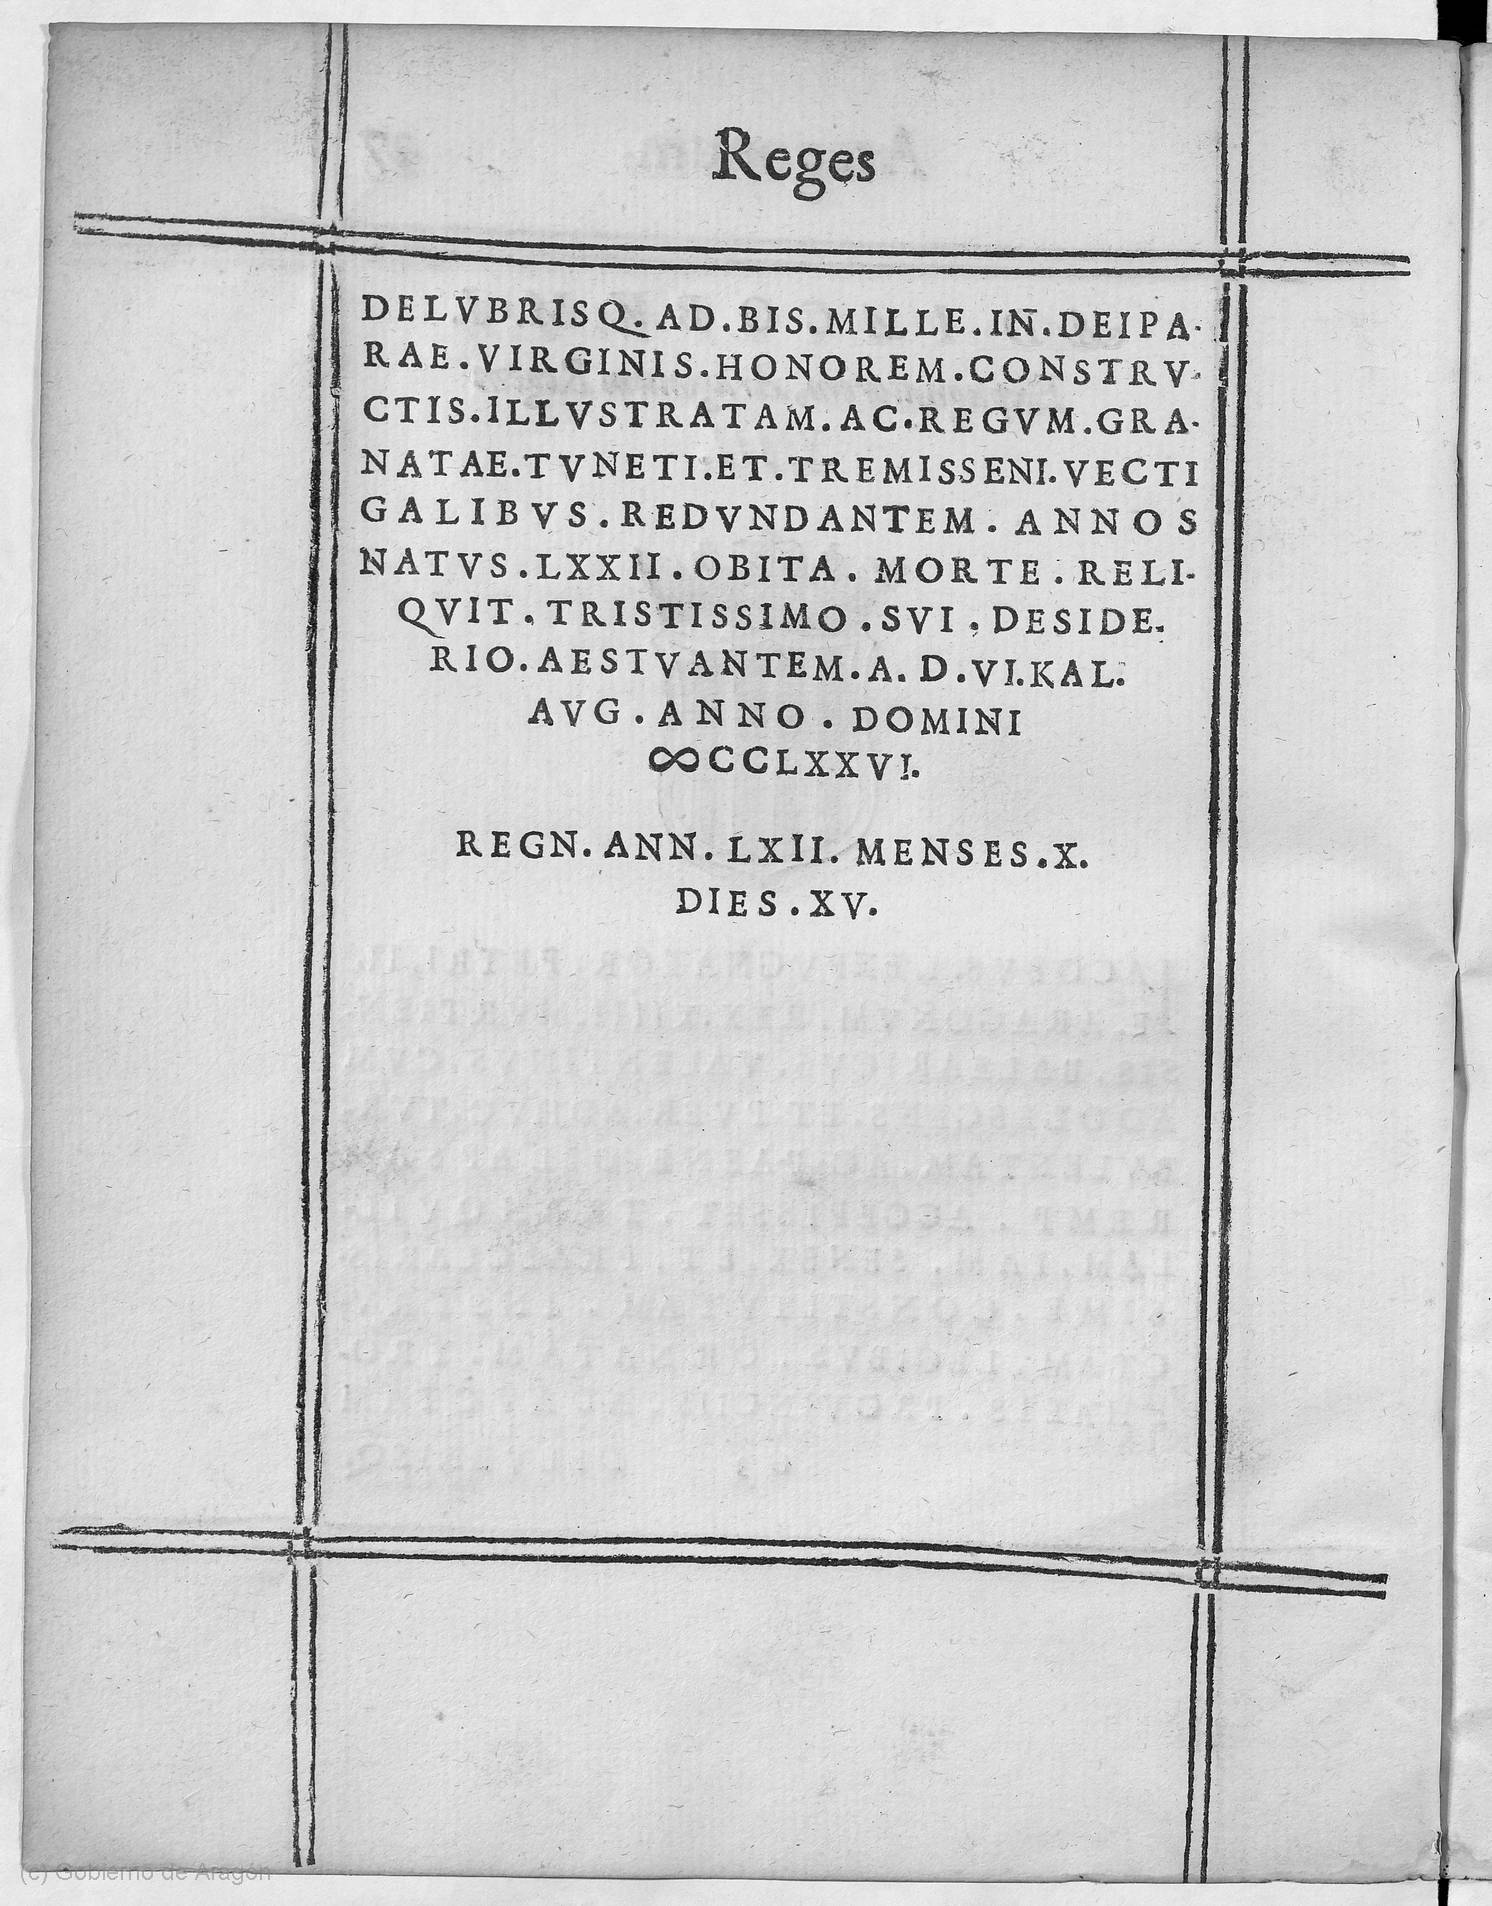 Reges
DELVBRISQ. AD.BIS.MILLE.IN̄.DEIPA-
RAE.VIRGINIS.HONOREM.CONSTRV-
CTIS.ILLVSTRATAM.AC.REGVM.GRA-
NATAE.TVNETI.ET.TREMISSENI.VECTI
GALIBVS.REDVNDANTEM. ANNOS
NATVS.LXXII.OBITA. MORTE. RELI-
QVIT.TRISTISSIMO.SVI.DESIDE-
RIO.AESTVANTEM.A.D.VI.KAL.
AVG.ANNO.DOMINI
∞CCLXXVI.
REGN. ANN. LXII. MENSES.X.
DIES.XV.
(c) Gobierno de Aragón